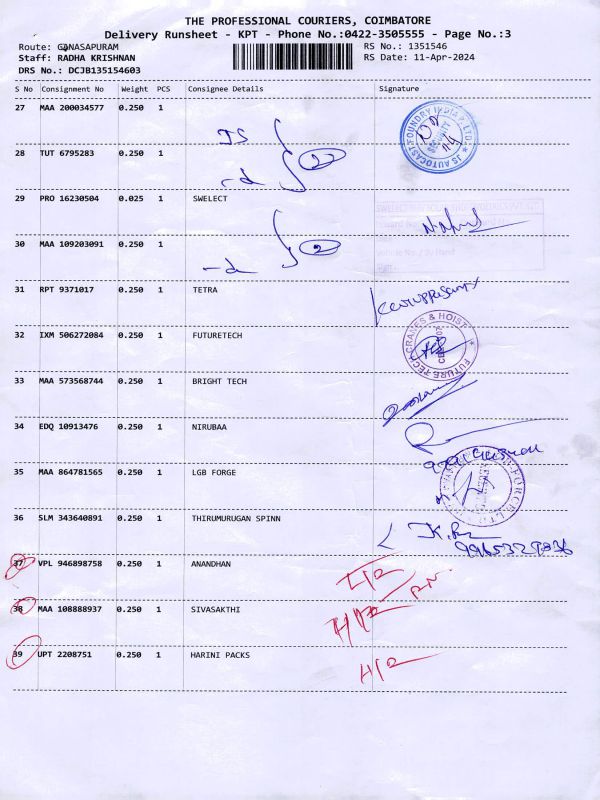 THE PROFESSIONAL COURIERS, COIMBATORE
Delivery Runsheet - KPT - Phone No.:0422-3505555 - Page No.:3
Route: GANASAPURAM
RS No.: 1351546
Staff: RADHA KRISHNAN
RS Date: 11-Apr-2024
DRS No.: DCJB135154603
S No Consignment No Weight PCS Consignee Details Signature
27 MAA 200034577 0.250 1
JS AUTOCAST FOUNDRY INDIA P LTD. SECURITY
JS
28 TUT 6795283 0.250 1
29 PRO 16230504 0.025 1 SWELECT
30 MAA 109203091 0.250 1
2
31 RPT 9371017 0.250 1 TETRA
32 IXM 506272084 0.250 1 FUTURETECH
FUTURE TECH CRANES & HOIST
33 MAA 573568744 0.250 1 BRIGHT TECH
34 EDQ 10913476 0.250 1 NIRUBAA
35 MAA 864781565 0.250 1 LGB FORGE
36 SLM 343640891 0.250 1 THIRUMURUGAN SPINN
37 VPL 946898758 0.250 1 ANANDHAN
38 MAA 108888937 0.250 1 SIVASAKTHI
39 UPT 2208751 0.250 1 HARINI PACKS